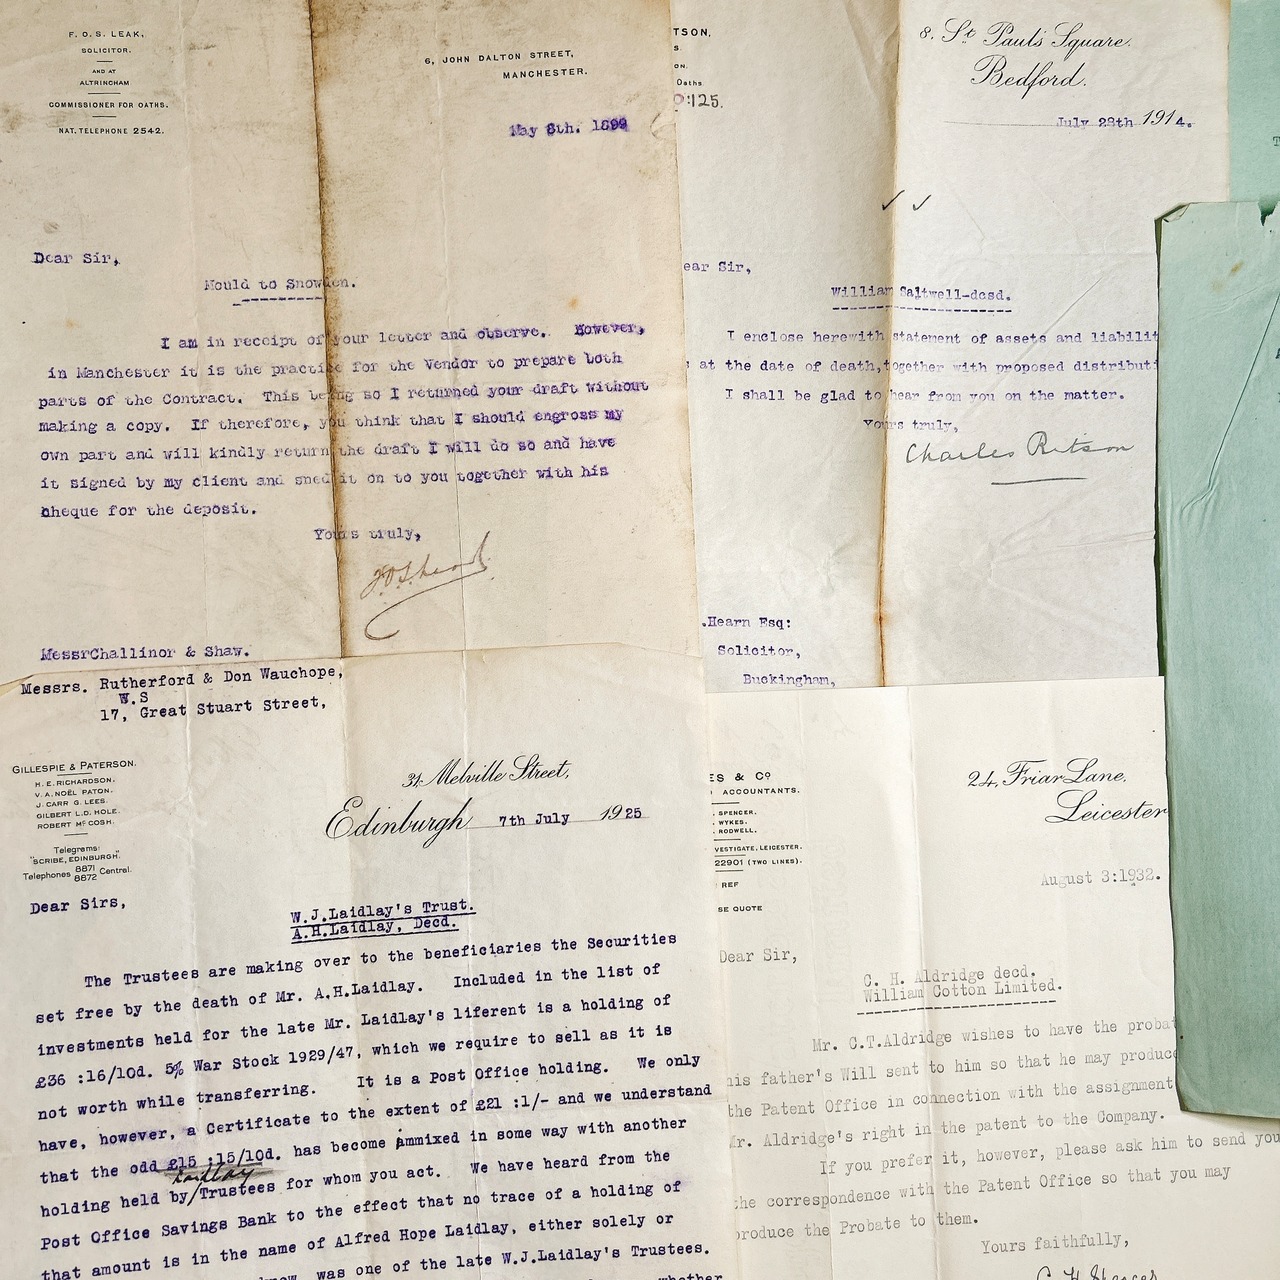 F. O. S. LEAK,
SOLICITOR.
AND AT
ALTRINCHAM
COMMISSIONER FOR OATHS.
NAT. TELEPHONE 2542.
6, JOHN DALTON STREET,
MANCHESTER.
May 8th. 1899
Dear Sir,
Mould to Snowden.
I am in receipt of your letter and observe. However,
in Manchester it is the practice for the Vendor to prepare both
parts of the Contract. This being so I returned your draft without
making a copy. If therefore, you think that I should engross my
own part and will kindly return the draft I will do so and have
it signed by my client and sned it on to you together with his
cheque for the deposit.
Yours truly,
MessrChallinor & Shaw.
TSON,
S.
ON.
Oaths
:125.
8. St Paul's Square.
Bedford.
July 28th 1914.
ear Sir,
William Saltwell-dcsd.
I enclose herewith statement of assets and liabilit
s at the date of death, together with proposed distributi
I shall be glad to hear from you on the matter.
Yours truly,
Charles Ritson
.Hearn Esq:
Solicitor,
Buckingham,
Messrs. Rutherford & Don Wauchope,
W.S
17, Great Stuart Street,
GILLESPIE & PATERSON.
H. E. RICHARDSON.
V. A. NOËL PATON.
J. CARR G. LEES.
GILBERT L.D. HOLE.
ROBERT McCOSH.
Telegrams:
"SCRIBE, EDINBURGH".
Telephones 8871 8872 Central.
31, Melville Street,
Edinburgh 7th July 1925
Dear Sirs,
W.J.Laidlay's Trust.
A.H.Laidlay, Decd.
The Trustees are making over to the beneficiaries the Securities
set free by the death of Mr. A.H.Laidlay. Included in the list of
investments held for the late Mr. Laidlay's liferent is a holding of
£36 :16/10d. 5% War Stock 1929/47, which we require to sell as it is
not worth while transferring. It is a Post Office holding. We only
have, however, a Certificate to the extent of £21 :1/- and we understand
that the odd £15 :15/10d. has become ammixed in some way with another
Laidlay
holding held by/Trustees for whom you act. We have heard from the
Post Office Savings Bank to the effect that no trace of a holding of
that amount is in the name of Alfred Hope Laidlay, either solely or
was one of the late W.J.Laidlay's Trustees.
whether
ES & Co
ACCOUNTANTS.
. SPENCER.
. WYKES.
. RODWELL.
VESTIGATE, LEICESTER.
22901 (TWO LINES).
REF
SE QUOTE
24, Friar Lane,
Leicester
August 3:1932.
Dear Sir,
C. H. Aldridge decd.
William Cotton Limited.
Mr. C.T.Aldridge wishes to have the probat
his father's Will sent to him so that he may produce
the Patent Office in connection with the assignment
Mr. Aldridge's right in the patent to the Company.
If you prefer it, however, please ask him to send you
the correspondence with the Patent Office so that you may
produce the Probate to them.
Yours faithfully,